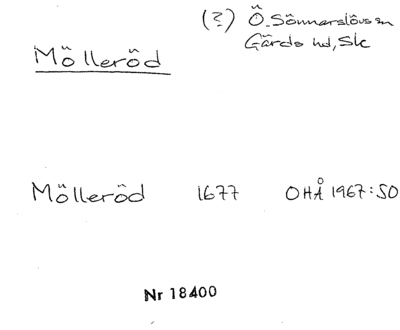 (?) Ö. Sönnarslövs sn
Gärds hd, Sk
Mölleröd
Mölleröd 1677 OHÅ 1967:50
Nr 18400